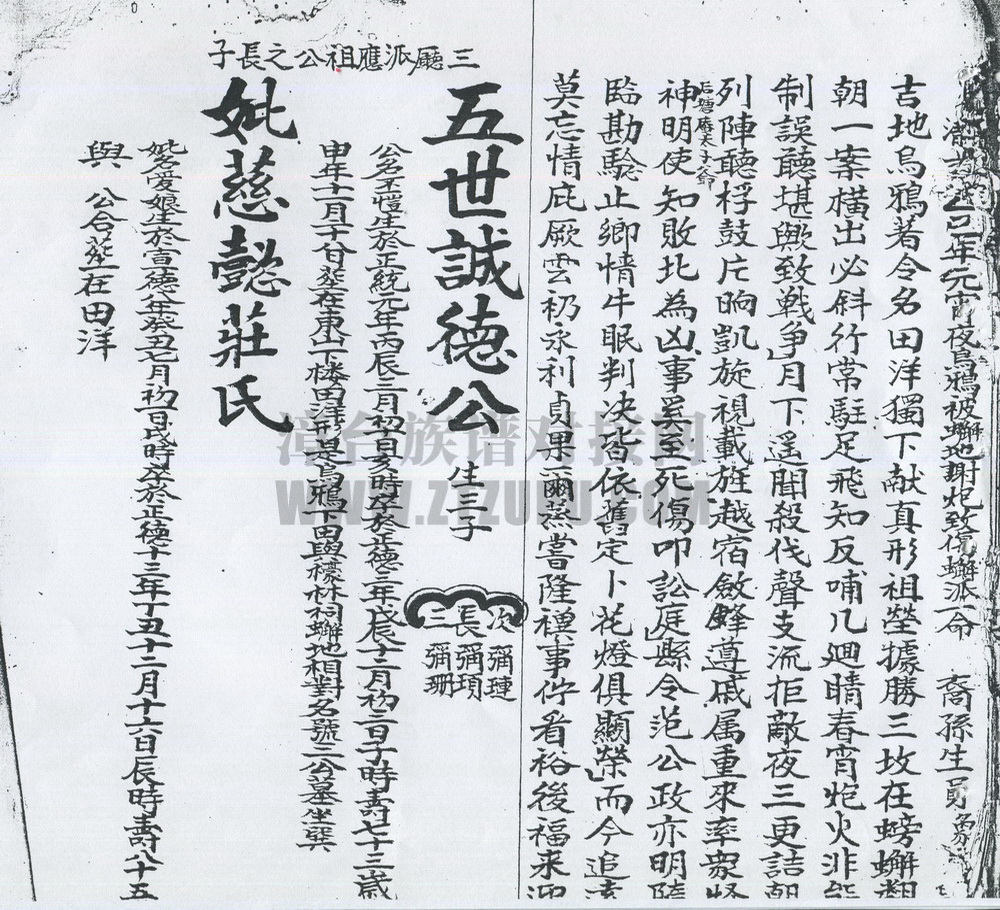 年元宵夜烏鴉被蠏地謝炮致傷蠏派一命 裔孫生員
吉地烏鴉著令名田洋獨下献真形祖塋據勝三坟在螃蠏
朝一案橫出必斜行常駐足飛知反哺几迴睛春宵炮火非
制誤聽堪輿致戰爭月下遥聞殺伐聲支流拒敵夜三更詰朝
列陣聽桴鼓片晌凱旋視載旌越宿斂鋒遵戚属重來率眾
神明使知敗北為凶事奚至死傷叩訟庭縣令范公政亦明
臨勘驗止鄉情牛眠判决皆依舊定卜花燈俱顯榮而今追
莫忘情庇厥雲礽永利貞果爾蒸嘗隆禋事佇看裕後福來
三廳派應祖公之長子
五世誠德公 生三子
次 彌璉
長 彌項
三 彌珊
公名丕愷生於正統元年丙辰二月初 日亥時卒於正德三年戊辰十二月初二日子時壽七十三歲
申年十一月廿日塟在東山下楼田洋形是烏鴉下田與檺林祠蠏地相對名號三公墓坐巽
妣慈懿莊氏
妣名愛娘生於宣德八年癸丑七月初一日辰時卒於正德十三年丁丑十二月十六日辰時壽八十五
與 公合塟在田洋
漳台族谱对接网
WWW.ZTZUPU.COM